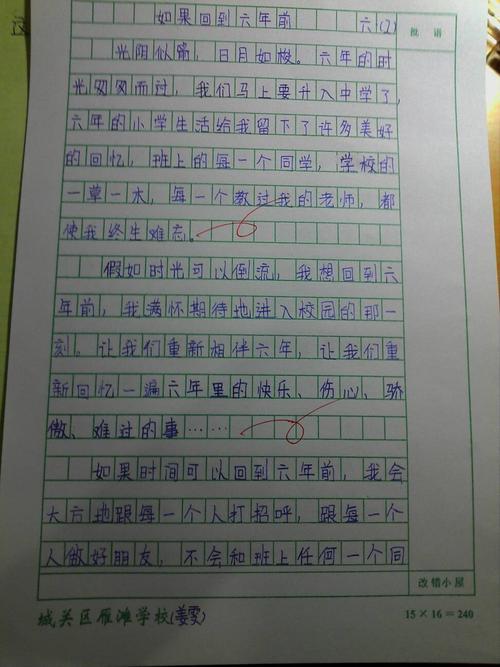 如果回到六年前 六(2)
批语
光阴似箭，日月如梭。六年的时
光匆匆而过，我们马上要升入中学了，
六年的小学生活给我留下了许多美好
的回忆，班上的每一个同学，学校的
一草一木，每一个教过我的老师，都
使我终生难忘。
假如时光可以倒流，我想回到六
年前，我满怀期待地进入校园的那一
刻。让我们重新相伴六年，让我们重
新回忆一遍六年里的快乐、伤心、骄
傲、难过的事……
如果时间可以回到六年前，我会
大方地跟每一个人打招呼，跟每一个
人做好朋友，不会和班上任何一个同
改错小屋
城关区雁滩学校(姜雯)
15×16=240